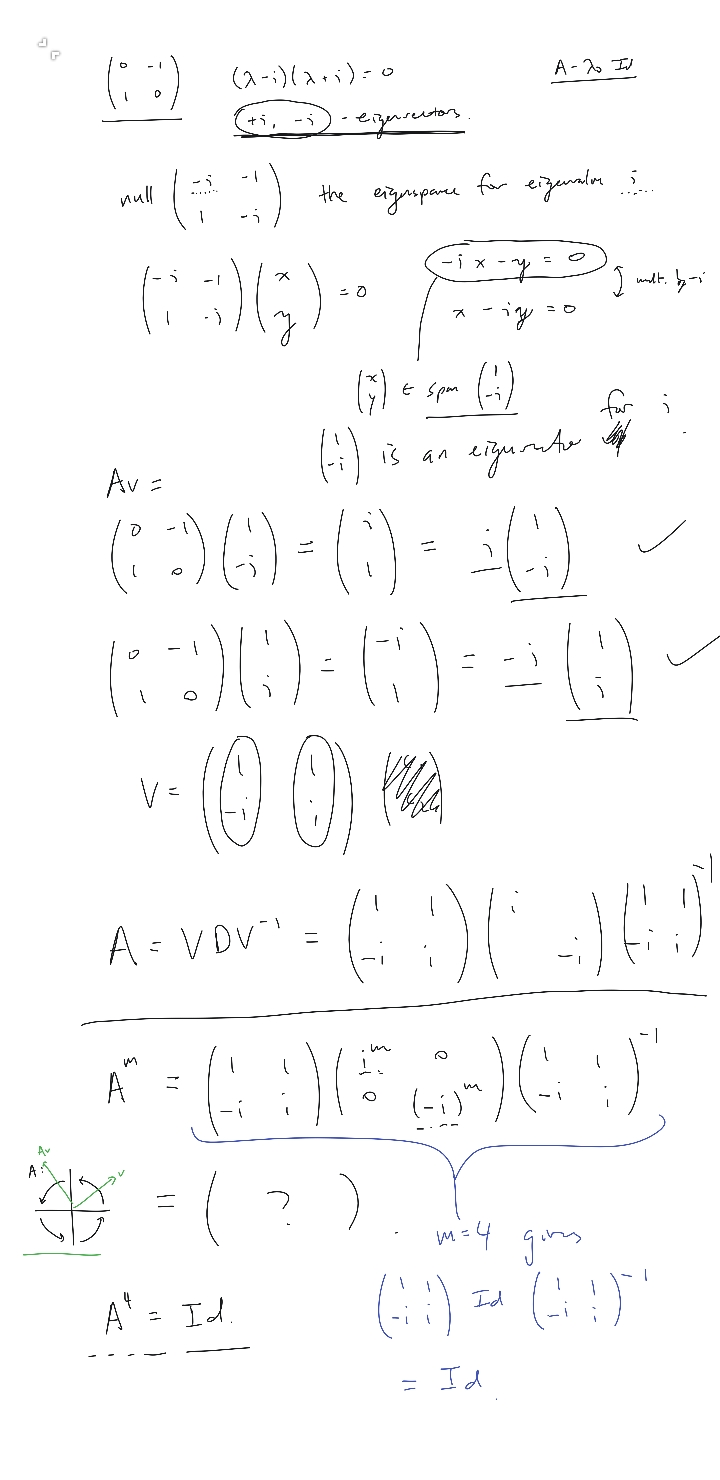 ( 0 -1 ; 1 0 )   (λ-i)(λ+i) = 0   A - λ₀ Id
+i, -i - eigenvectors.
null ( -i -1 ; 1 -i ) the eigenspace for eigenvalue i
( -i -1 ; 1 -i ) ( x ; y ) = 0   -i x - y = 0
x - iy = 0   mult. by -i
( x ; y ) ∈ span ( 1 ; -i )
( 1 ; -i ) is an eigenvector for i
Av =
( 0 -1 ; 1 0 ) ( 1 ; -i ) = ( i ; 1 ) = i ( 1 ; -i ) ✓
( 0 -1 ; 1 0 ) ( 1 ; i ) = ( -i ; 1 ) = -i ( 1 ; i ) ✓
V = ( 1 1 ; -i i )
A = VDV⁻¹ = ( 1 1 ; -i i ) ( i ; -i ) ( 1 1 ; -i i )⁻¹
Aᵐ = ( 1 1 ; -i i ) ( iᵐ 0 ; 0 (-i)ᵐ ) ( 1 1 ; -i i )⁻¹
A: Av v
= ( ? ).
m=4 gives
( 1 1 ; -i i ) Id ( 1 1 ; -i i )⁻¹
A⁴ = Id.
= Id.